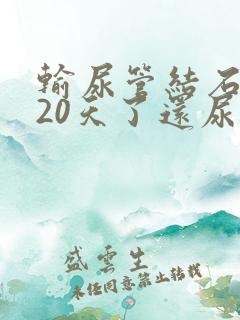 輸尿管結石
20天了還尿
盛雲生
未经同意禁止转载